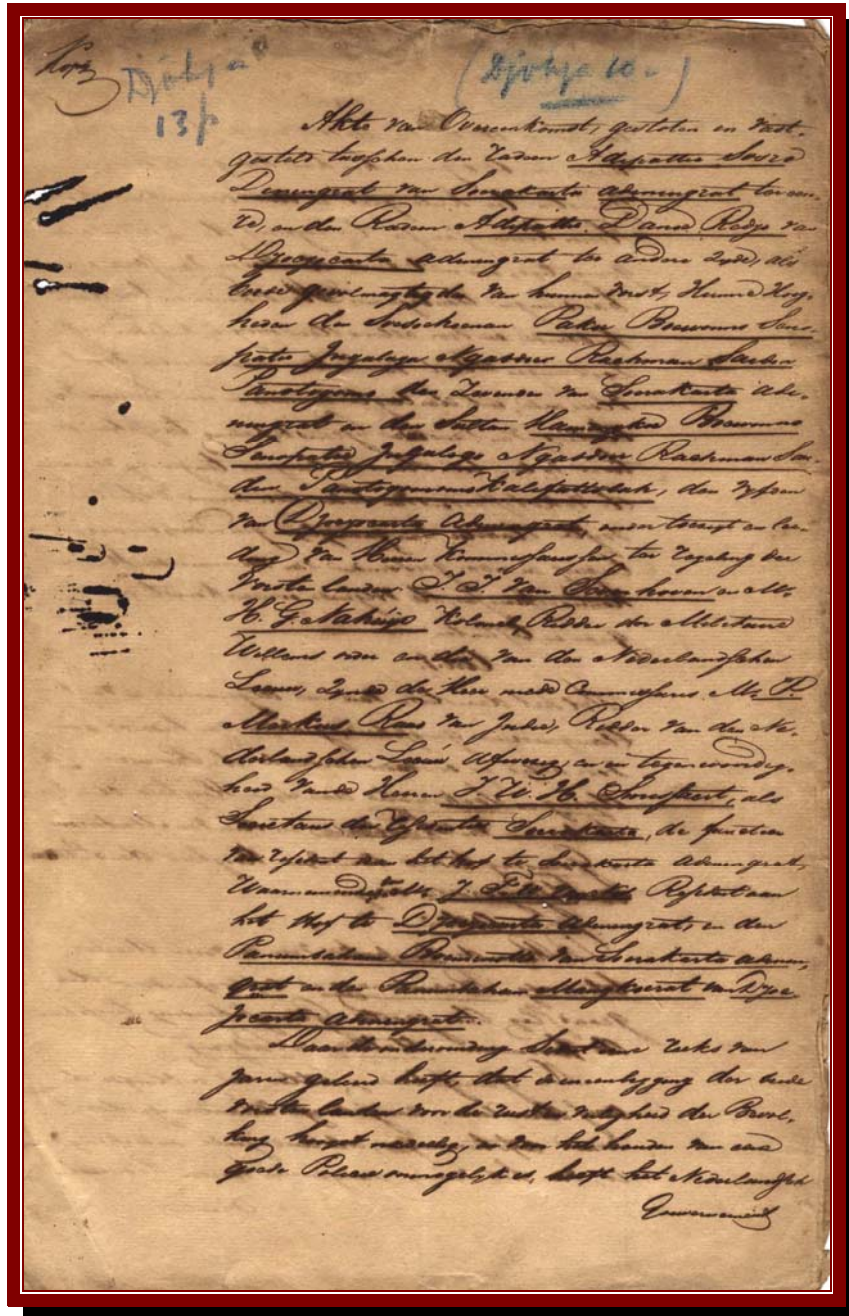 Kopij
Djokja
13 p
(Djokja 10 a)
Akte van Overeenkomst, gesloten en vast-
gesteld tusschen den Radeen Adepattie Sosro
Deningrat van Sourakarta adeningrat ter eene
Zÿde, en den Radeen Adepattie Danoe Redjo van
Djocjocarta adeningrat ter andere Zyde, als
beide gevolmagtigden van hunnen vorst, Hunne Hoog-
heden den Soesoehoenan Pakoe Bouwono Seno-
pattie Ingalaga Ngabdoer Rachman Saidin
Panotogomo den Zevenden van Sourakarta Ade-
ningrat en den Sultan Hamengkoe Bouwono
Senopattie Ingalogo Ngabdoer Rachman Sai-
din Panotogomo Kalifattolah, den vyfden
van Djocjocarta Adeningrat, onder toezigt en lei-
ding van Heeren Kommissarissen ter regeling der
Vorsten landen J. J. Van Sevenhoven en Mr.
H. G. Nahuijs Kolonel, Ridder der Militaire
Willems orde en dien van den Nederlandschen
Leeuw, Zynde de Heer mede Commissaris Mr. P.
Merkus Raad van Indie, Ridder van den Ne-
derlandschen Leeuw Afwezig, en in tegenwoordig-
heid van de Heeren J. W. H. als
Secretaris der residentie Sourakarta, de functien
van resident aan het hof te Sourakarta adeningrat,
Waarnemende, en J. F. W. van Nes Resident aan
het Hof te Djocjocarta Adeningrat, en den
Panumbahan van Sourakarta adenin-
grat en den Panumbahan Mangkoerat van Djoc-
jocarta Adeningrat.
Daar de ondervinding Sedert eene reeks van
jaren geleerd heeft, dat de der beide
vorsten landen voor de rust en veiligheid der Bevol-
king hoogst nadeelig, en voor het houden van eene
goede Policie onmogelyk is, heeft het Nederlandsch
Gouvernement